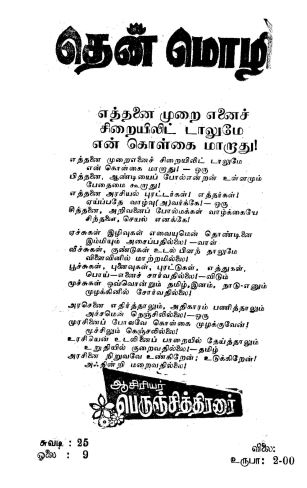 தென் மொழி
எத்தனை முறை எனைச்
சிறையிலிட் டாலுமே
என் கொள்கை மாறாது!
எத்தனை முறைஎனைச் சிறையிலிட் டாலுமே
என் கொள்கை மாறாது! — ஒரு
பித்தனை, ஆண்டியைப் போல்என்றன் உள்ளமும்
பேதைமை கூறாது!
எத்தனை அரசியல் புரட்டர்கள்! எத்தர்கள்!
ஏய்ப்பதே வாழ்வு(அ)வர்க்கே!—ஒரு
சித்தனை, அறிவனைப் போல்மக்கள் வாழ்க்கையே
சிந்தனை, செயல் எனக்கே!
ஏச்சுகள் இழிவுகள் எவையுமென் தொண்டினை
இம்மியும் அசைப்பதில்லை!—வாள்
வீச்சுகள், குண்டுகள் உடல் பிளந் தாலுமே
விளைவினில் மாற்றமில்லை!
பூச்சுகள், புனைவுகள், புரட்டுகள், எத்துகள்,
பொய்—எனைச் சாய்வதில்லை!—விடும்
மூச்சுகள் ஒவ்வொன்றும் தமிழ்,இனம், நாடு-எனும்
முழக்கினில் சோர்வதில்லை!
அரசெனை எதிர்த்தாலும், அதிகாரம் பணித்தாலும்
அச்சமென் நெஞ்சிலில்லை!—ஒரு
முரசினைப் போலவே கொள்கை முழக்குவேன்!
மூச்சிலும் கெஞ்சலில்லை!
உரசியென் உடலினைப் பாறையில் தேய்த்தாலும்
உறுதியில் குறைவதில்லை!—தமிழ்
அரசினை நிறுவவே உண்கிறேன்; உடுகிறேன்!
அஃதின்றி மறைவதில்லை!
ஆசிரியர்
பெருஞ்சித்திரனார்
சுவடி : 25
ஓலை : 9
விலை:
உருபா: 2-00